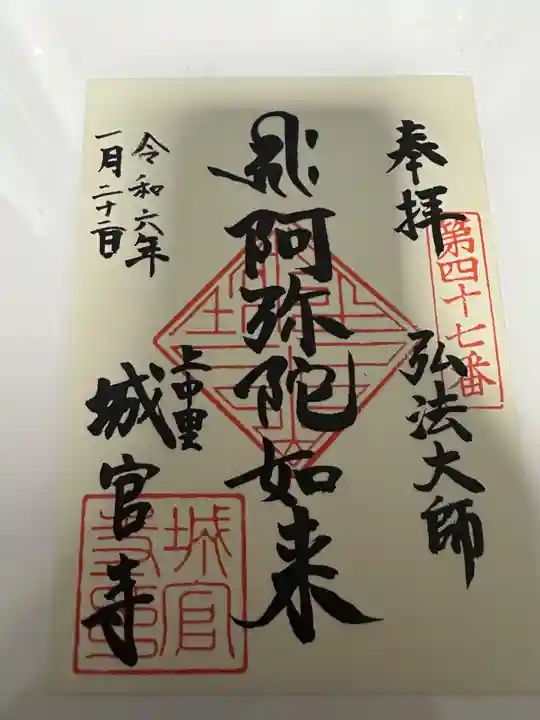 奉拝
第四十七番
弘法大師
阿弥陀如来
上中里
城官寺
令和六年
一月二十二日
城官